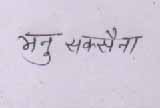 मनु सकसैना